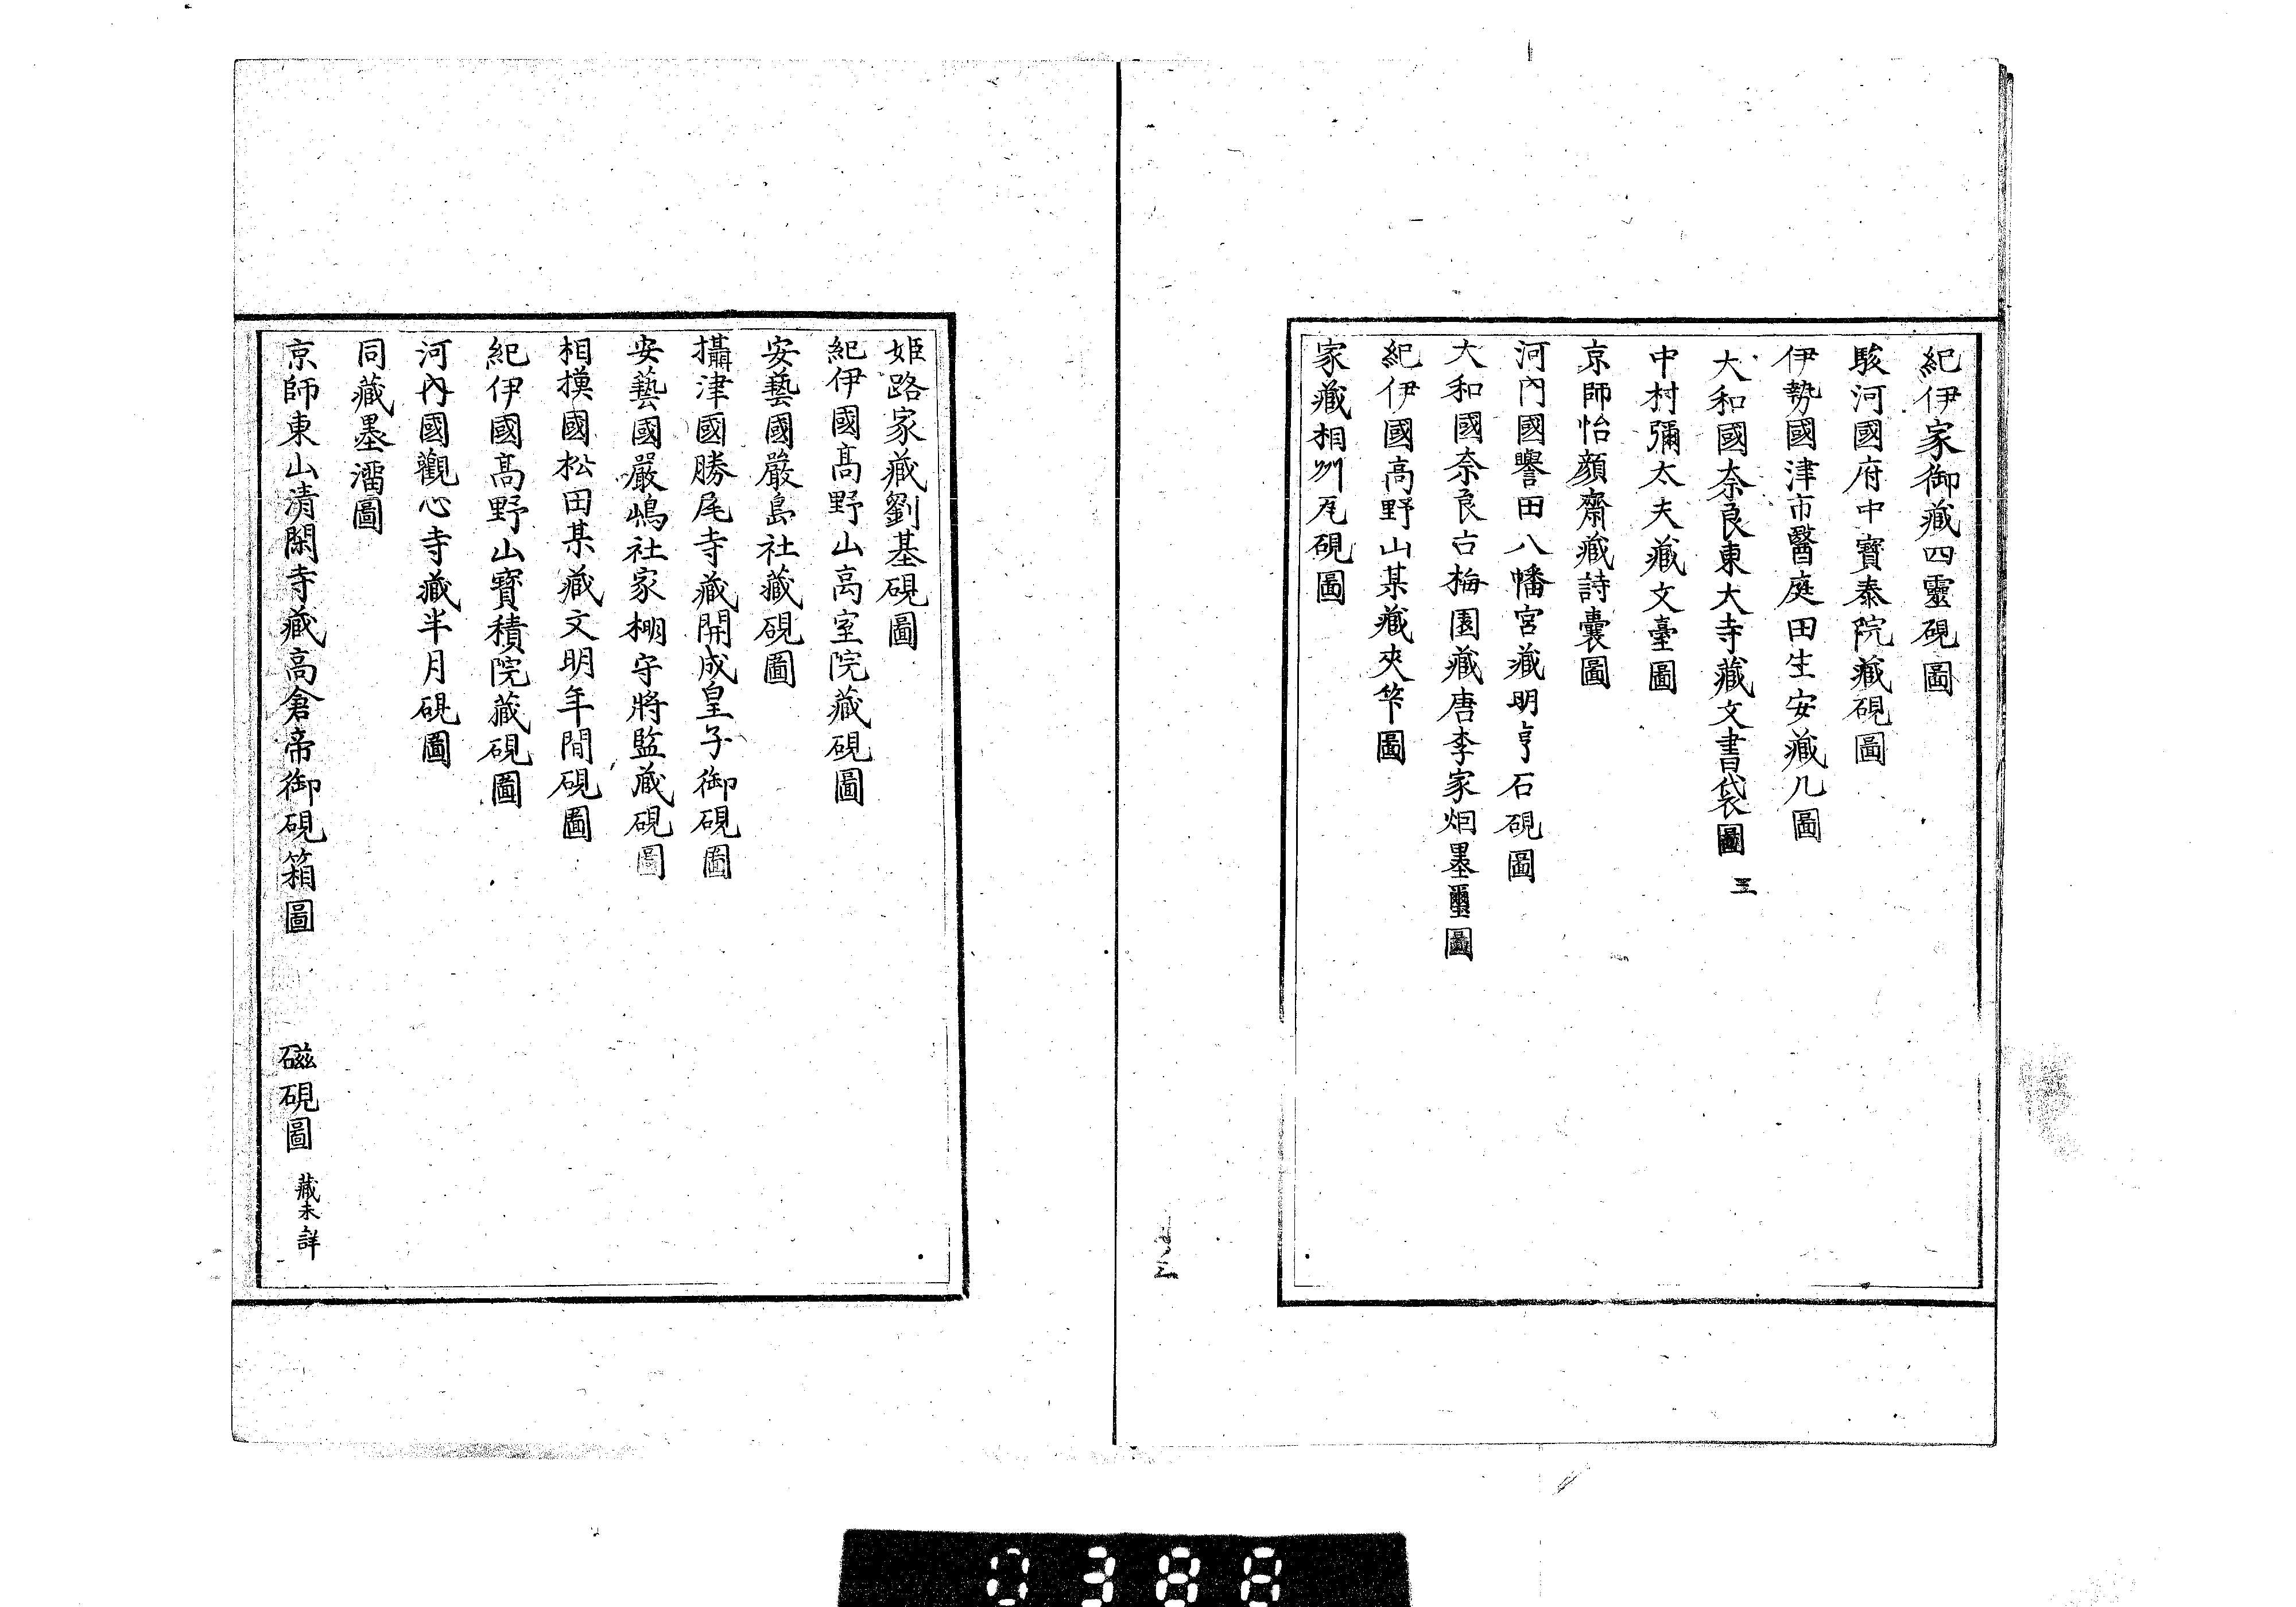 紀伊家御藏四靈硯圖
駿河國府中寶泰院藏硯圖
伊勢國津市醫庭田生安藏几圖
大和國奈良東大寺藏文書袋圖 三
中村彌太夫藏文臺圖
京師怡顔齋藏詩囊圖
河內國譽田八幡宮藏明亨石硯圖
大和國奈良古梅園藏唐李家烟墨璽圖
紀伊國高野山某藏夾筭圖
家藏相州瓦硯圖
姫路家藏劉基硯圖
紀伊國高野山高室院藏硯圖
安藝國嚴島社藏硯圖
攝津國勝尾寺藏開成皇子御硯圖
安藝國嚴嶋社家棚守將監藏硯圖
相摸國松田某藏文明年間硯圖
紀伊國高野山寶積院藏硯圖
河內國觀心寺藏半月硯圖
同藏墨溜圖
京師東山清閑寺藏高倉帝御硯箱圖 磁硯圖 藏未詳
0388